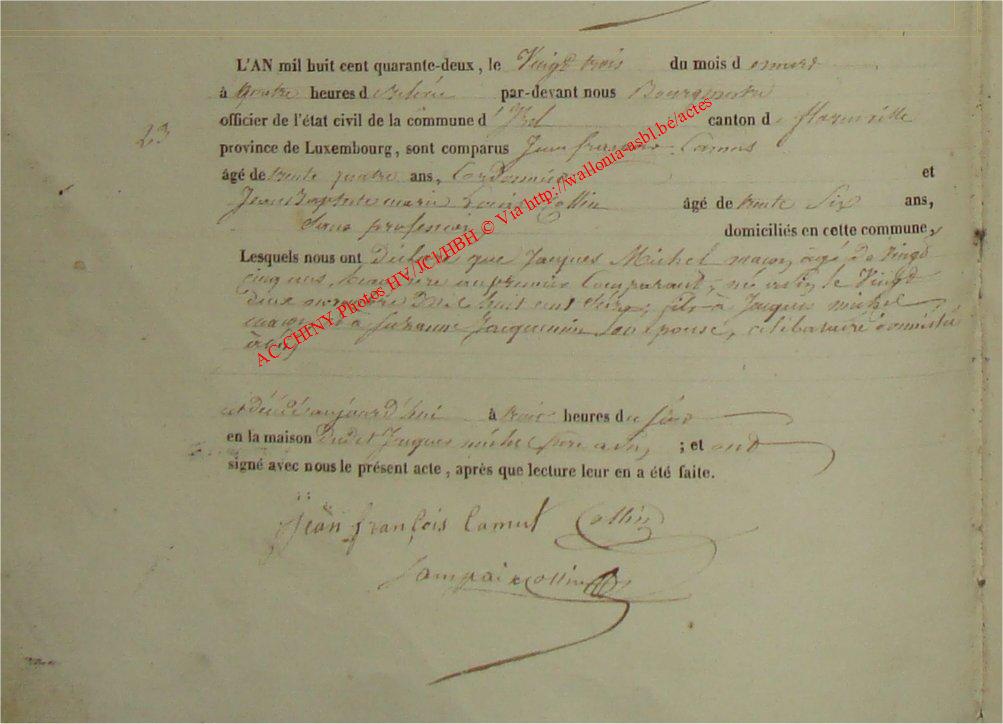 L'AN mil huit cent quarante-deux, le Vingt trois du mois d
23
à quatre heures d par-devant nous Bourgmestre
officier de l'état civil de la commune d' Izel canton de florenville
province de Luxembourg, sont comparus Jean françois Camus
âgé de trente quatre ans, Cordonnier et
Jean Baptiste marie Collin âgé de trente Six ans,
Sans profession domiciliés en cette commune,
Lesquels nous ont déclaré que Jacques Michel maçon, âgé de vingt
cinq ans, au premier Comparant, né le Vingt
deux mil huit cent Seize, fils à Jacques michel
maçon à Suzanne Jacquemin Son épouse, célibataire domicilié
est décédé aujourd'hui à trois heures du Soir
en la maison dudit Jacques michel ; et ont
signé avec nous le présent acte, après que lecture leur en a été faite.
Jean françois Camus Collin
AC-CHINY Photos HV/JCl/HBH © Via http://wallonia-asbl.be/actes